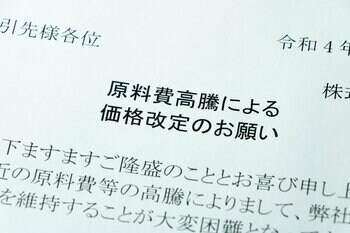 引先様各位
令和４年
株式
原料費高騰による
価格改定のお願い
下ますますご隆盛のこととお喜び申し上
近の原料費等の高騰によりまして、弊社
を維持することが大変困難とな